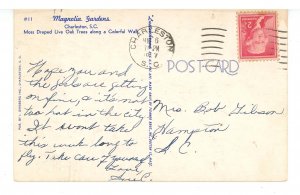 #11
Magnolia Gardens.
Charleston, S.C.
Moss Draped Live Oak Trees along a Colorful Walk.
CHARLESTON
PM
S.C.
POST CARD
Hope you and
the gals are getting
on fine, its not
too hot in the city.
It wont take
this week long to
fly. Take care of yourself
Love,
Mrs. Bob Gibson
Hampton
S.C.